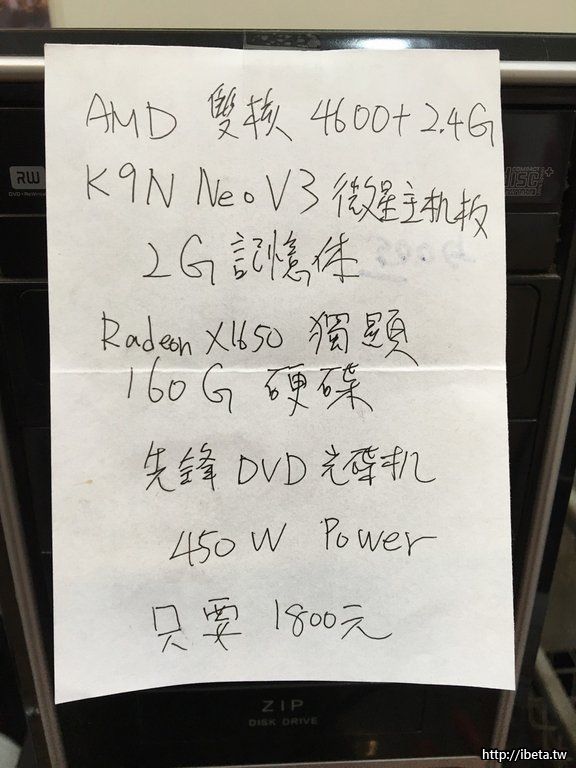 AMD 雙核 4600+ 2.4G
K9N Neo V3 微星主机板
2G 記憶体
Radeon X1650 獨顯
160G 硬碟
先鋒 DVD 光碟机
450W Power
只要 1800元
RW
ZIP
DISK DRIVE
http://ibeta.tw